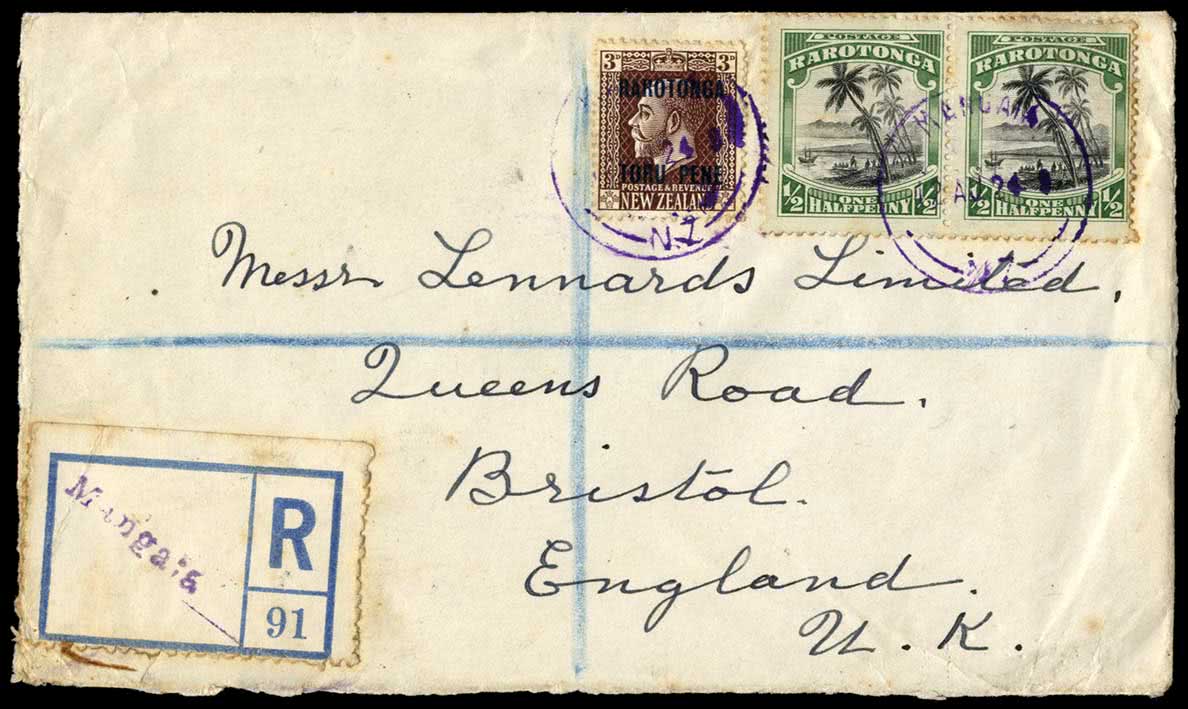 3D 3D
RAROTONGA
TORU PENE
POSTAGE & REVENUE
NEW ZEALAND
N.Z
POSTAGE
RAROTONGA
½ ONE HALFPENNY ½
POSTAGE
RAROTONGA
½ ONE HALFPENNY ½
24
Messrs Lennards Limited,
Queens Road.
Bristol.
England.
U. K.
Mangaia
R
91